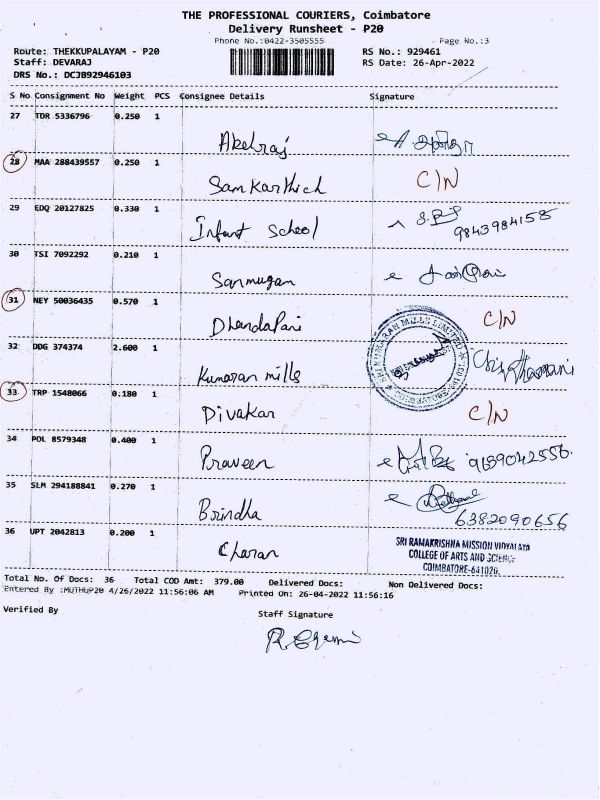 THE PROFESSIONAL COURIERS, Coimbatore
Delivery Runsheet - P20
Phone No.:0422-3505555 Page No.:3
Route: THEKKUPALAYAM - P20 RS No.: 929461
Staff: DEVARAJ RS Date: 26-Apr-2022
DRS No.: DCJB92946103
S No Consignment No Weight PCS Consignee Details Signature
27 TDR 5336796 0.250 1
28 MAA 288439557 0.250 1
Samkarthick C/N
29 EDQ 20127825 0.330 1
Infant School 9843984158
30 TSI 7092292 0.210 1
Sanmugan
31 NEY 50036435 0.570 1
DhandaPani C/N
32 DDG 374374 2.600 1
Kumaran mills
33 TRP 1548066 0.180 1
Divakar C/N
34 POL 8579348 0.400 1
Praveen
35 SLM 294188841 0.270 1
Brindha 6382090656
36 UPT 2042813 0.200 1
Charan
SRI RAMAKRISHNA MISSION VIDYALAYA
COLLEGE OF ARTS AND SCIENCE
COIMBATORE-641020.
Total No. Of Docs: 36 Total COD Amt: 379.00 Delivered Docs: Non Delivered Docs:
Entered By :MUTHUP20 4/26/2022 11:56:06 AM Printed On: 26-04-2022 11:56:16
Verified By
Staff Signature